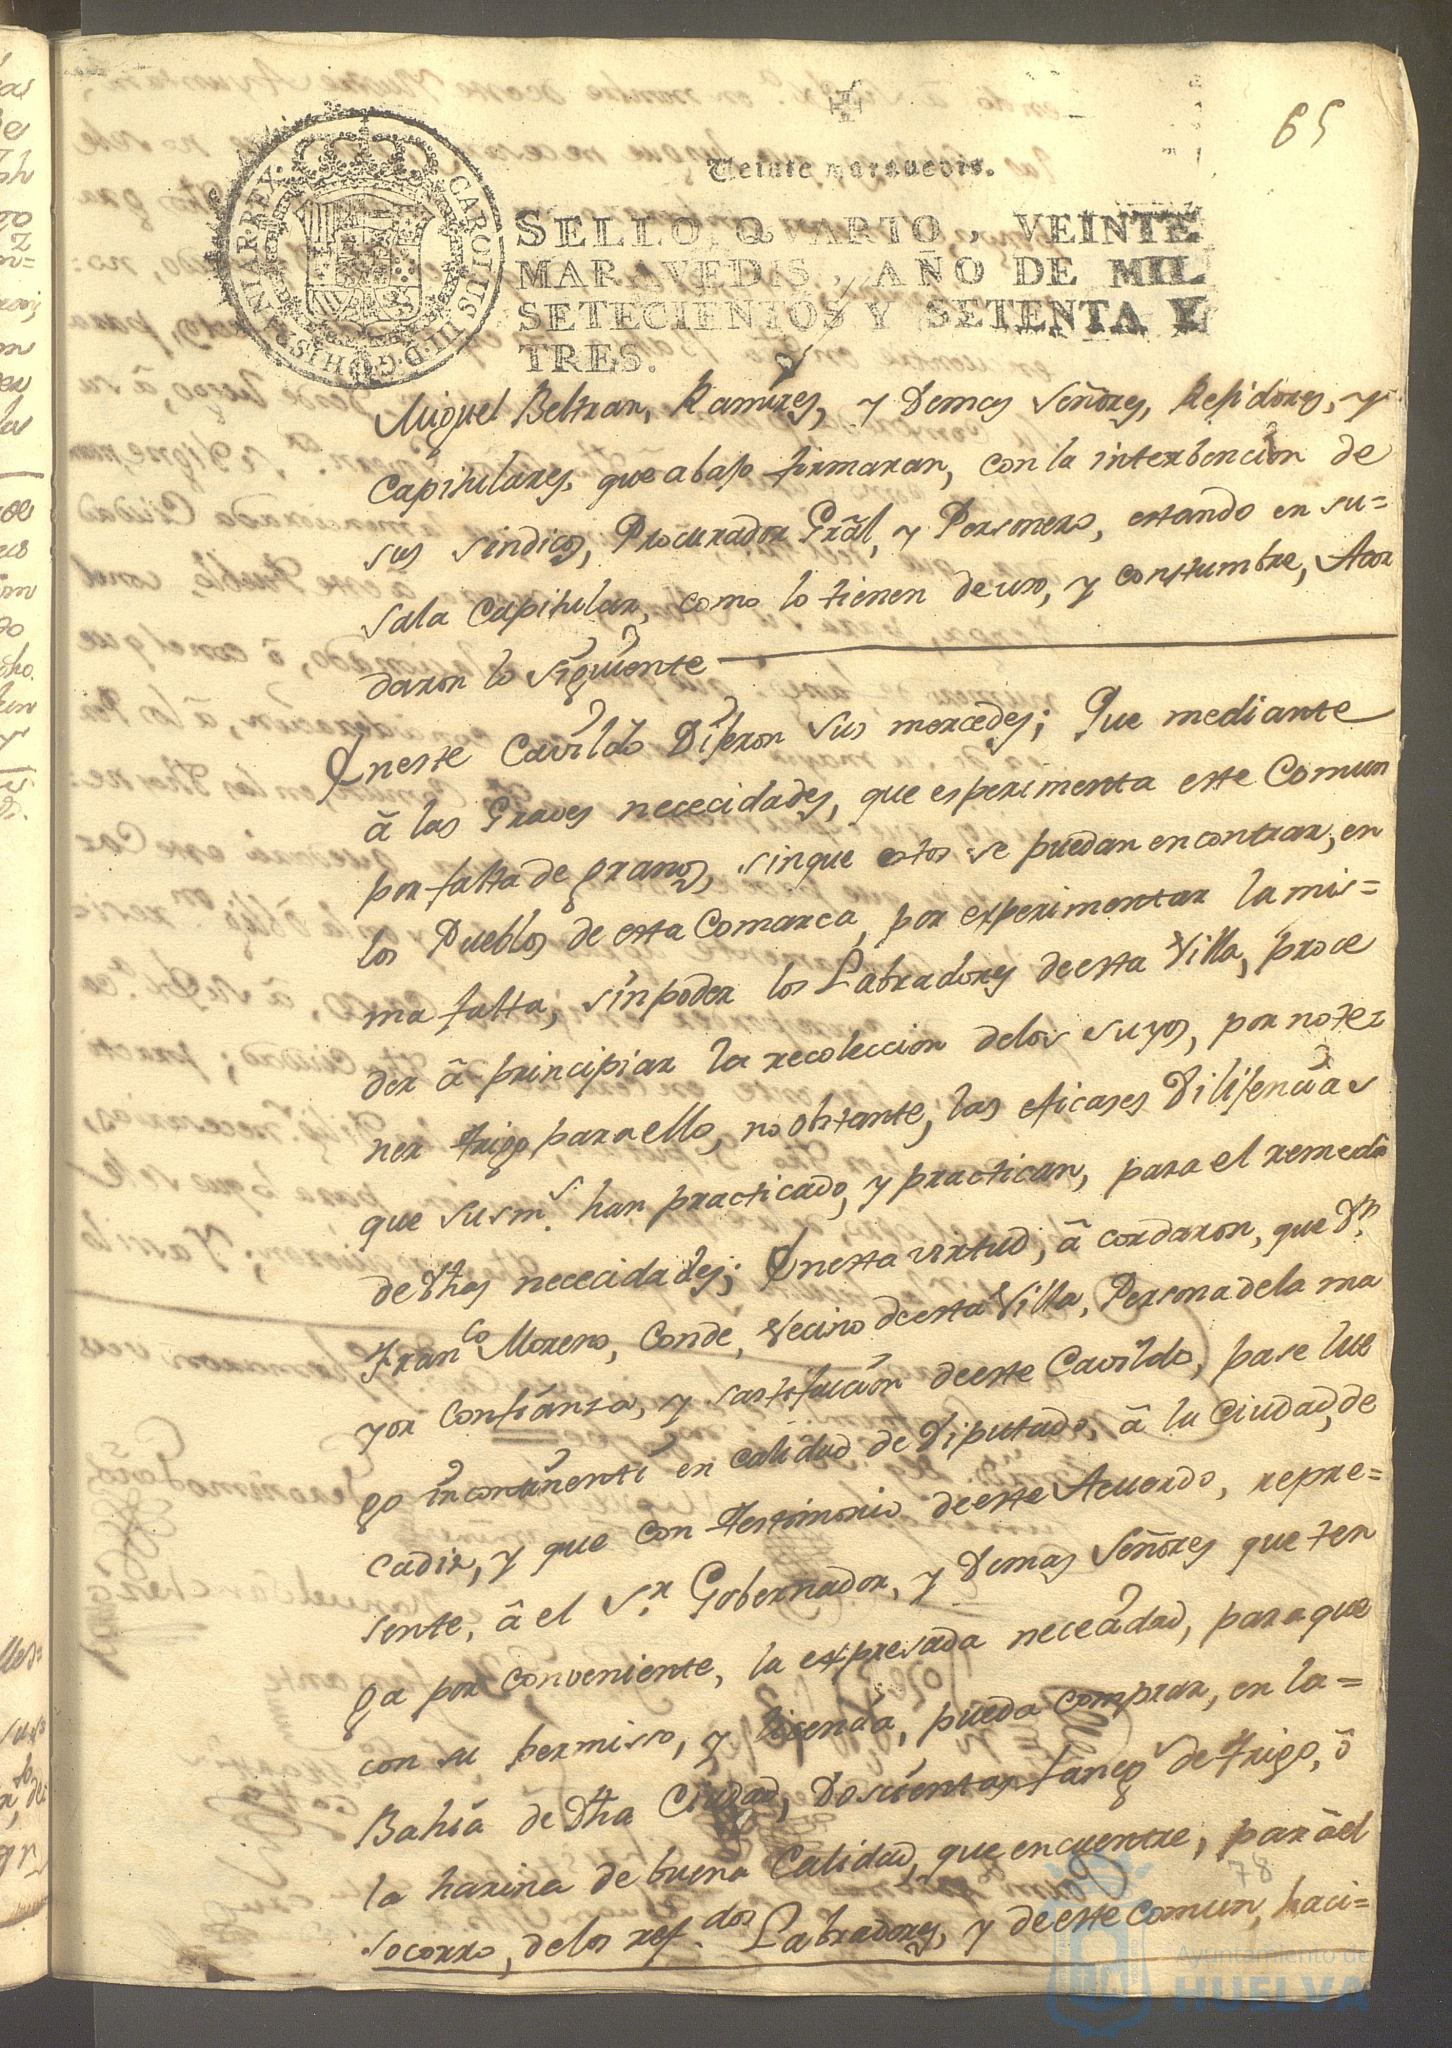 65
Veinte marauedis.
SELLO QVARTO, VEINTE
MARAVEDIS, AÑO DE MIL
SETECIENTOS Y SETENTA Y
TRES.
CAROLUS III D G HISPANIAR REX
Miguel Beltran, Ramires, y Demas señores, Rexidores, y
Capitulares, que abajo firmaran, con la interbencion de
sus sindicos, Procurador Gräl, y Personero, estando en su=
sala Capitular, como lo tienen de uso, y constumbre, Acor
daron lo siguiente
Eneste Cavildo Dijeron sus mercedes; Que mediante
â las Graves nececidades, que esperimenta este Comun
por falta de granos, sinque estos se puedan encontrar, en
los Pueblos de esta Comarca, por experimentar la mis=
ma falta, sin poder los Labradores deesta Villa, proce
der â principiar la recoleccion delos suyos, por no te=
ner trigo para ello, no obstante, las eficases Dilijencias
que sus m.s han practicado, y practican, para el remedio
de dhas nececidades; Enesta virtud, âcordaron, que Dn.
Franco Moreno, Conde, Vecino deesta Villa, Persona dela ma
yor confianza, y sastifacion deeste Cavildo, pase lue
go incontinenti en calidad de Diputado, â la Ciudad, de
Cadiz, y que con testimonio deeste Acuerdo, repre=
sente, â el Sr. Gobernador, y Demas Señores que ten
ga por conveniente, la expresada nececidad, para que
con su permisso, y licencia, pueda comprar, en la=
Bahia de dha Ciudad, Doscientas faneg.s de trigo, ô
la harina de buena Calidad, que encuentre, para el
socorro, delos ref.dos Labradores, y deeste comun, haci=
78
Ayuntamiento de
HUELVA